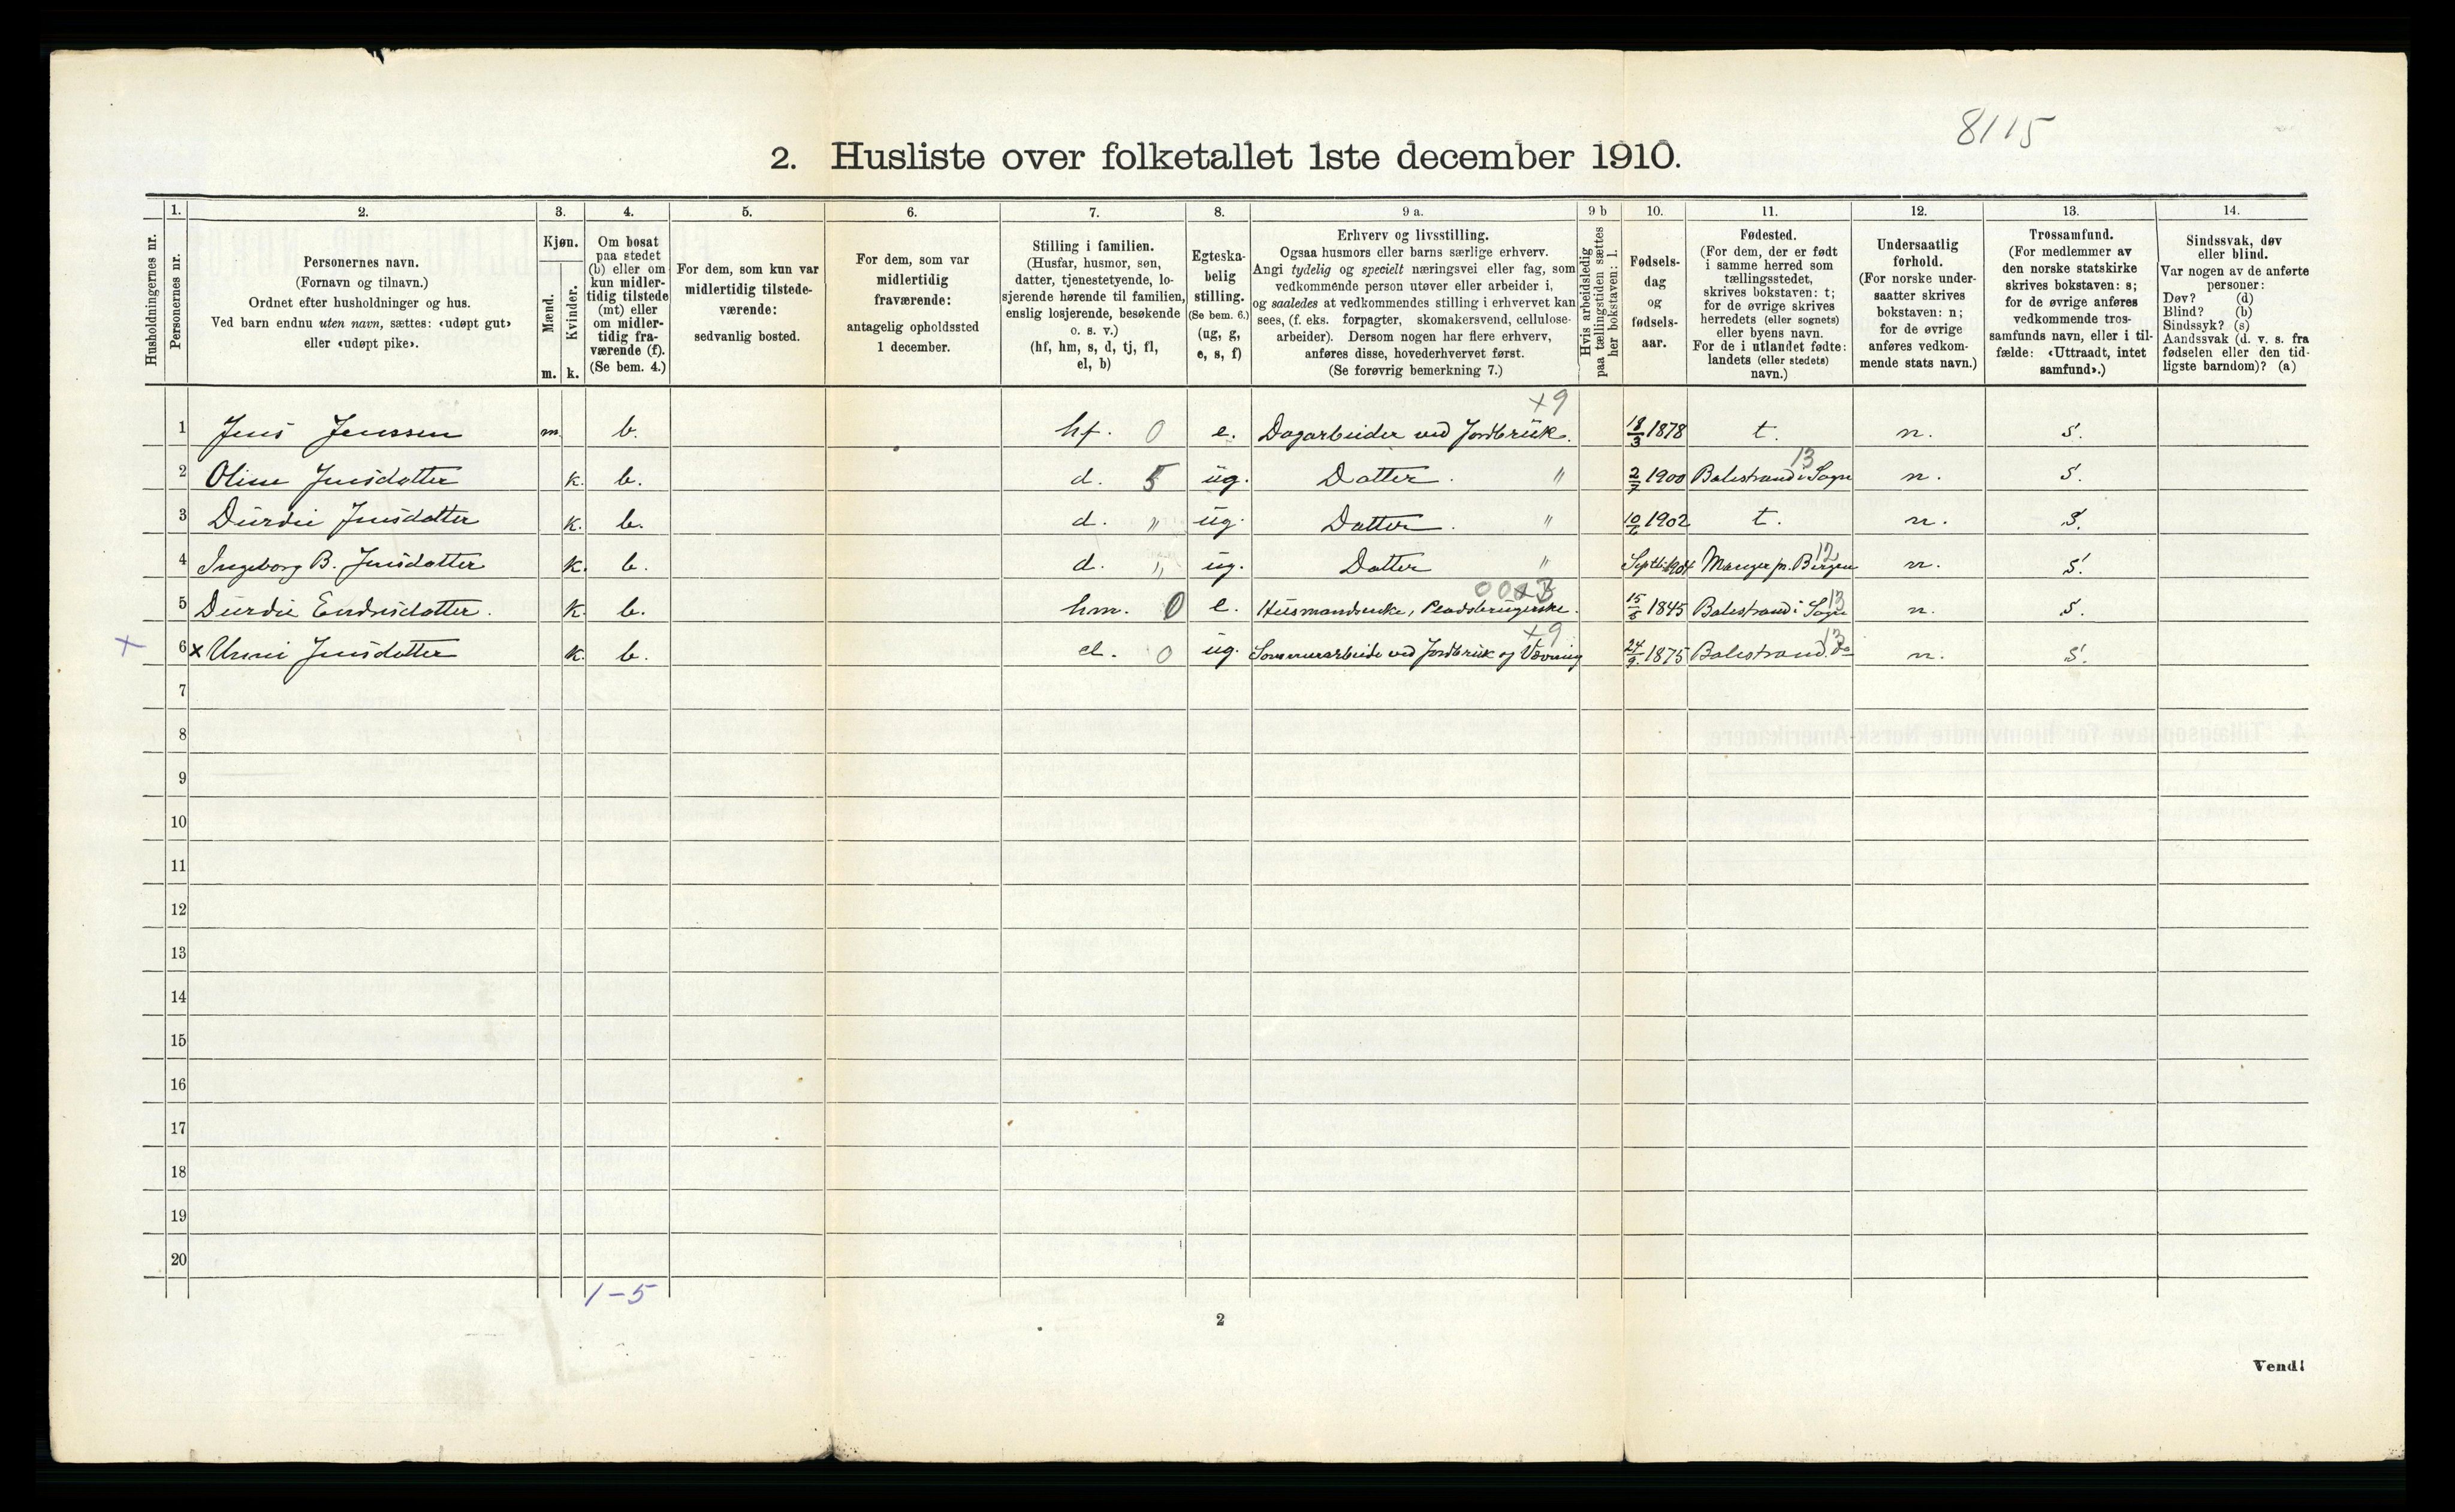 8115
2. Husliste over folketallet 1ste december 1910.
Husholdningernes nr.
1. 2. 3. 4. 5. 6. 7. 8. 9 a. 9 b 10. 11. 12. 13. 14.
Personernes nr.
Personernes navn.
(Fornavn og tilnavn.)
Ordnet efter husholdninger og hus.
Ved barn endnu uten navn, sættes: «udøpt gut»
eller «udøpt pike».
Kjøn.
Mænd.
Kvinder.
m. k.
Om bosat
paa stedet
(b) eller om
kun midler-
tidig tilstede
(mt) eller
om midler-
tidig fra-
værende (f).
(Se bem. 4.)
For dem, som kun var
midlertidig tilstede-
værende:
sedvanlig bosted.
For dem, som var
midlertidig
fraværende:
antagelig opholdssted
1 december.
Stilling i familien.
(Husfar, husmor, søn,
datter, tjenestetyende, lo-
sjerende hørende til familien,
enslig losjerende, besøkende
o. s. v.)
(hf, hm, s, d, tj, fl,
el, b)
Egteska-
belig
stilling.
(Se bem. 6.)
(ug, g,
e, s, f)
Erhverv og livsstilling.
Ogsaa husmors eller barns særlige erhverv.
Angi tydelig og specielt næringsvei eller fag, som
vedkommende person utøver eller arbeider i,
og saaledes at vedkommendes stilling i erhvervet kan
sees, (f. eks. forpagter, skomakersvend, cellulose-
arbeider). Dersom nogen har flere erhverv,
anføres disse, hovederhvervet først.
(Se forøvrig bemerkning 7.)
Hvis arbeidsledig
paa tællingstiden sættes
her bokstaven: l.
Fødsels-
dag
og
fødsels-
aar.
Fødested.
(For dem, der er født
i samme herred som
tællingsstedet,
skrives bokstaven: t;
for de øvrige skrives
herredets (eller sognets)
eller byens navn.
For de i utlandet fødte:
landets (eller stedets)
navn.)
Undersaatlig
forhold.
(For norske under-
saatter skrives
bokstaven: n;
for de øvrige
anføres vedkom-
mende stats navn.)
Trossamfund.
(For medlemmer av
den norske statskirke
skrives bokstaven: s;
for de øvrige anføres
vedkommende tros-
samfunds navn, eller i til-
fælde: «Uttraadt, intet
samfund».)
Sindssvak, døv
eller blind.
Var nogen av de anførte
personer:
Døv? (d)
Blind? (b)
Sindssyk? (s)
Aandssvak (d. v. s. fra
fødselen eller den tid-
ligste barndom)? (a)
x9
1 Jens Jenssen m. b. hf. 0 e. Dagarbeider ved Jordbrük. 18/3 1878 t. n. s.
13
2 Oline Jensdatter k. b. d. 5 üg. Datter. " 2/7 1900 Balestrand i Sogn n. s.
3 Dürdei Jensdatter k. b. d. " üg. Datter. " 10/6 1902 t. n. s.
12
4 Ingeborg B. Jensdatter k. b. d. " üg. Datter " Manger p. Bergen n. s.
13
5 Dürdei Endresdatter. k. b. hm. 0 e. Hüsmandsenke, Pladsbrügerske. 15/5 1845 Balestrand i Sogn n. s.
x9 13
x 6 x Unni Jensdatter k. b. el. 0 üg. Sommerarbeide ved Jordbrük og Vævning 24/9. 1875 Balestrand. do n. s.
7
8
9
10
11
12
13
14
15
16
17
18
19
20
1-5
2
Vend!